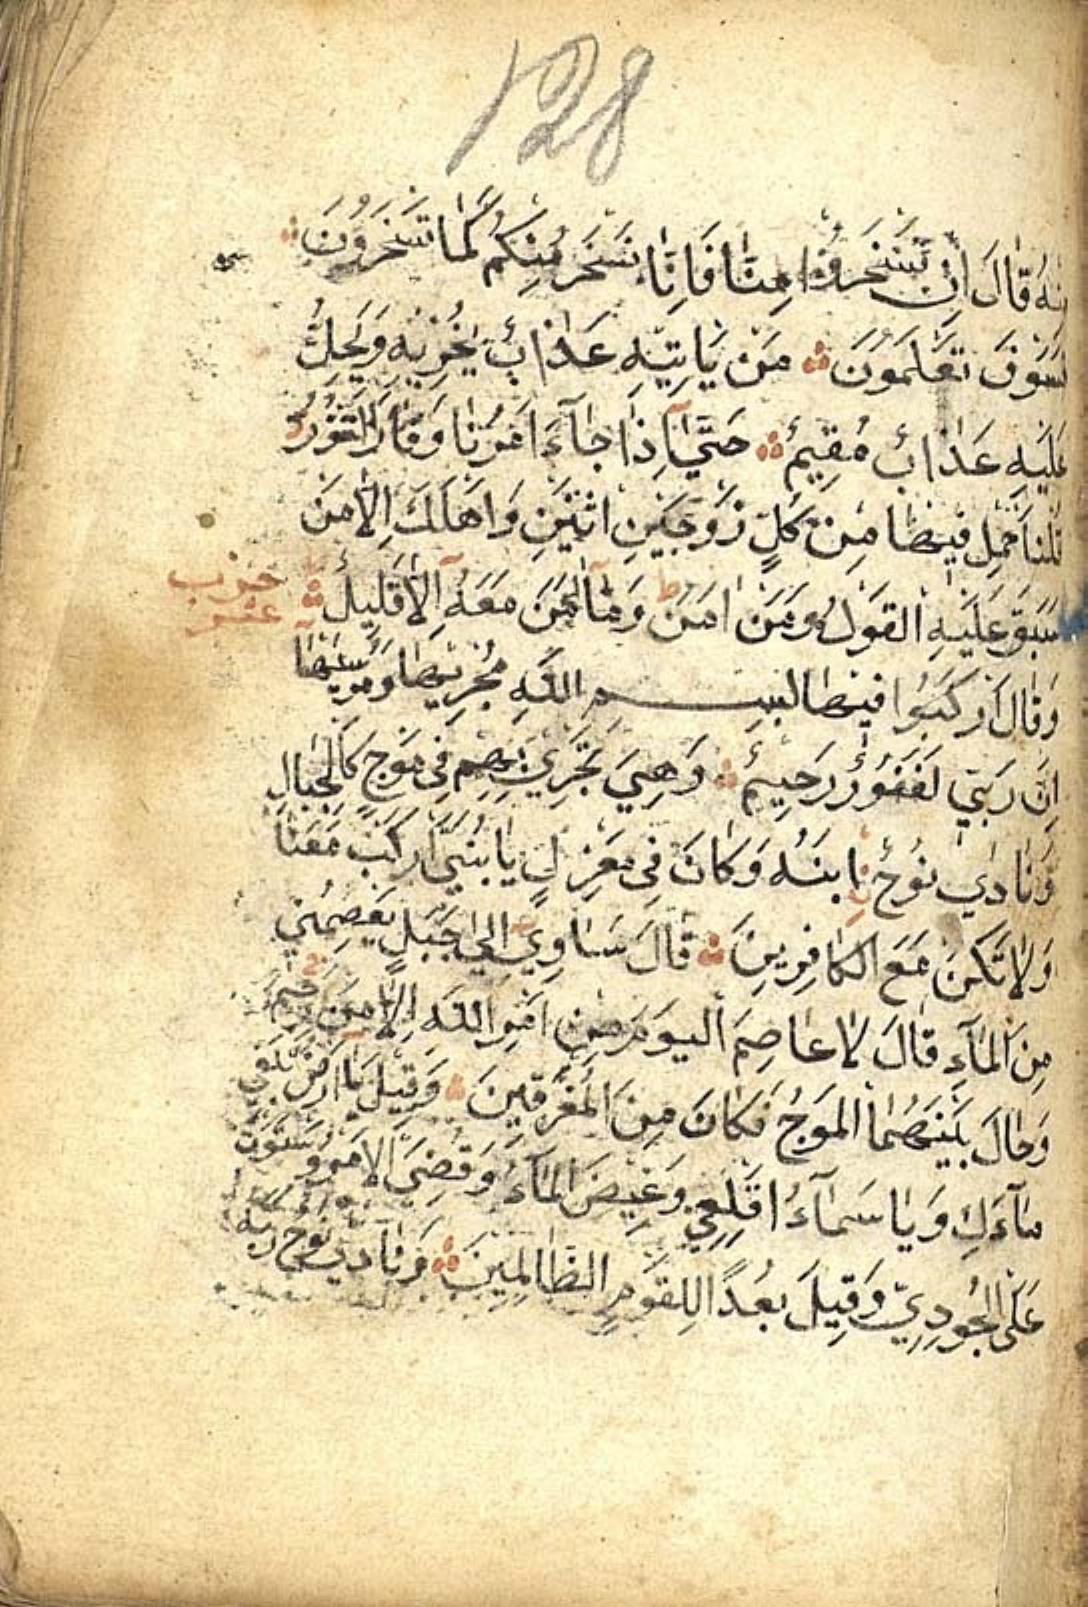 128
منه قال ان تسخروا منا فانا نسخر منكم كما تسخرون
فسوف تعلمون من ياتيه عذاب يخزيه ويحل
عليه عذاب مقيم حتى اذا جاء امرنا وفار التنور
قلنا احمل فيها من كل زوجين اثنين واهلك الا من
سبق عليه القول ومن امن وما امن معه الا قليل
حزب
عشر
وقال اركبوا فيها بسم الله مجريها ومرسيها
ان ربي لغفور رحيم وهي تجري بهم في موج كالجبال
ونادى نوح ابنه وكان في معزل يا بني اركب معنا
ولا تكن مع الكافرين قال ساوي الى جبل يعصمني
من الماء قال لا عاصم اليوم من امر الله الا من رحم
وحال بينهما الموج فكان من المغرقين وقيل يا ارض ابلعي
ماءك ويا سماء اقلعي وغيض الماء وقضي الامر واستوت
على الجودي وقيل بعدا للقوم الظالمين ونادى نوح ربه